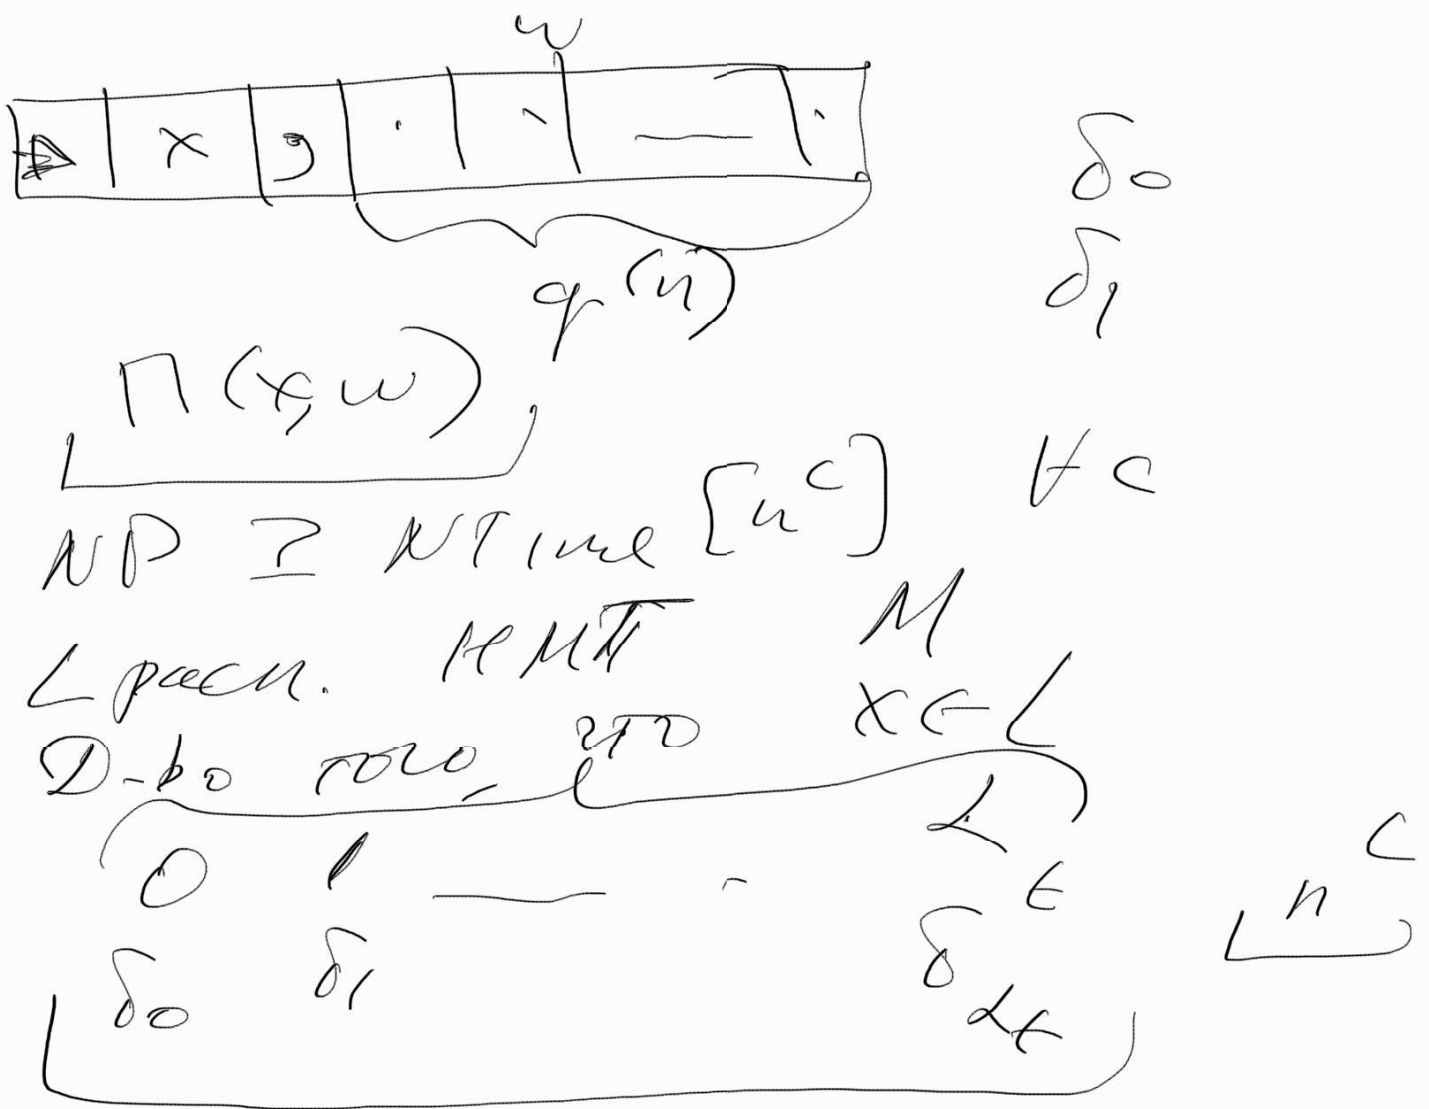 w
▷ x , · · — ·
q(n)
δ₀
δ₁
П(x,w)
∀c
NP ⊇ NTime[n^c]
L расп. НМТ M
Д-во того, что x ∈ L
0 1 — - α_t
δ₀ δ₁ δ_{α_t}
n^c